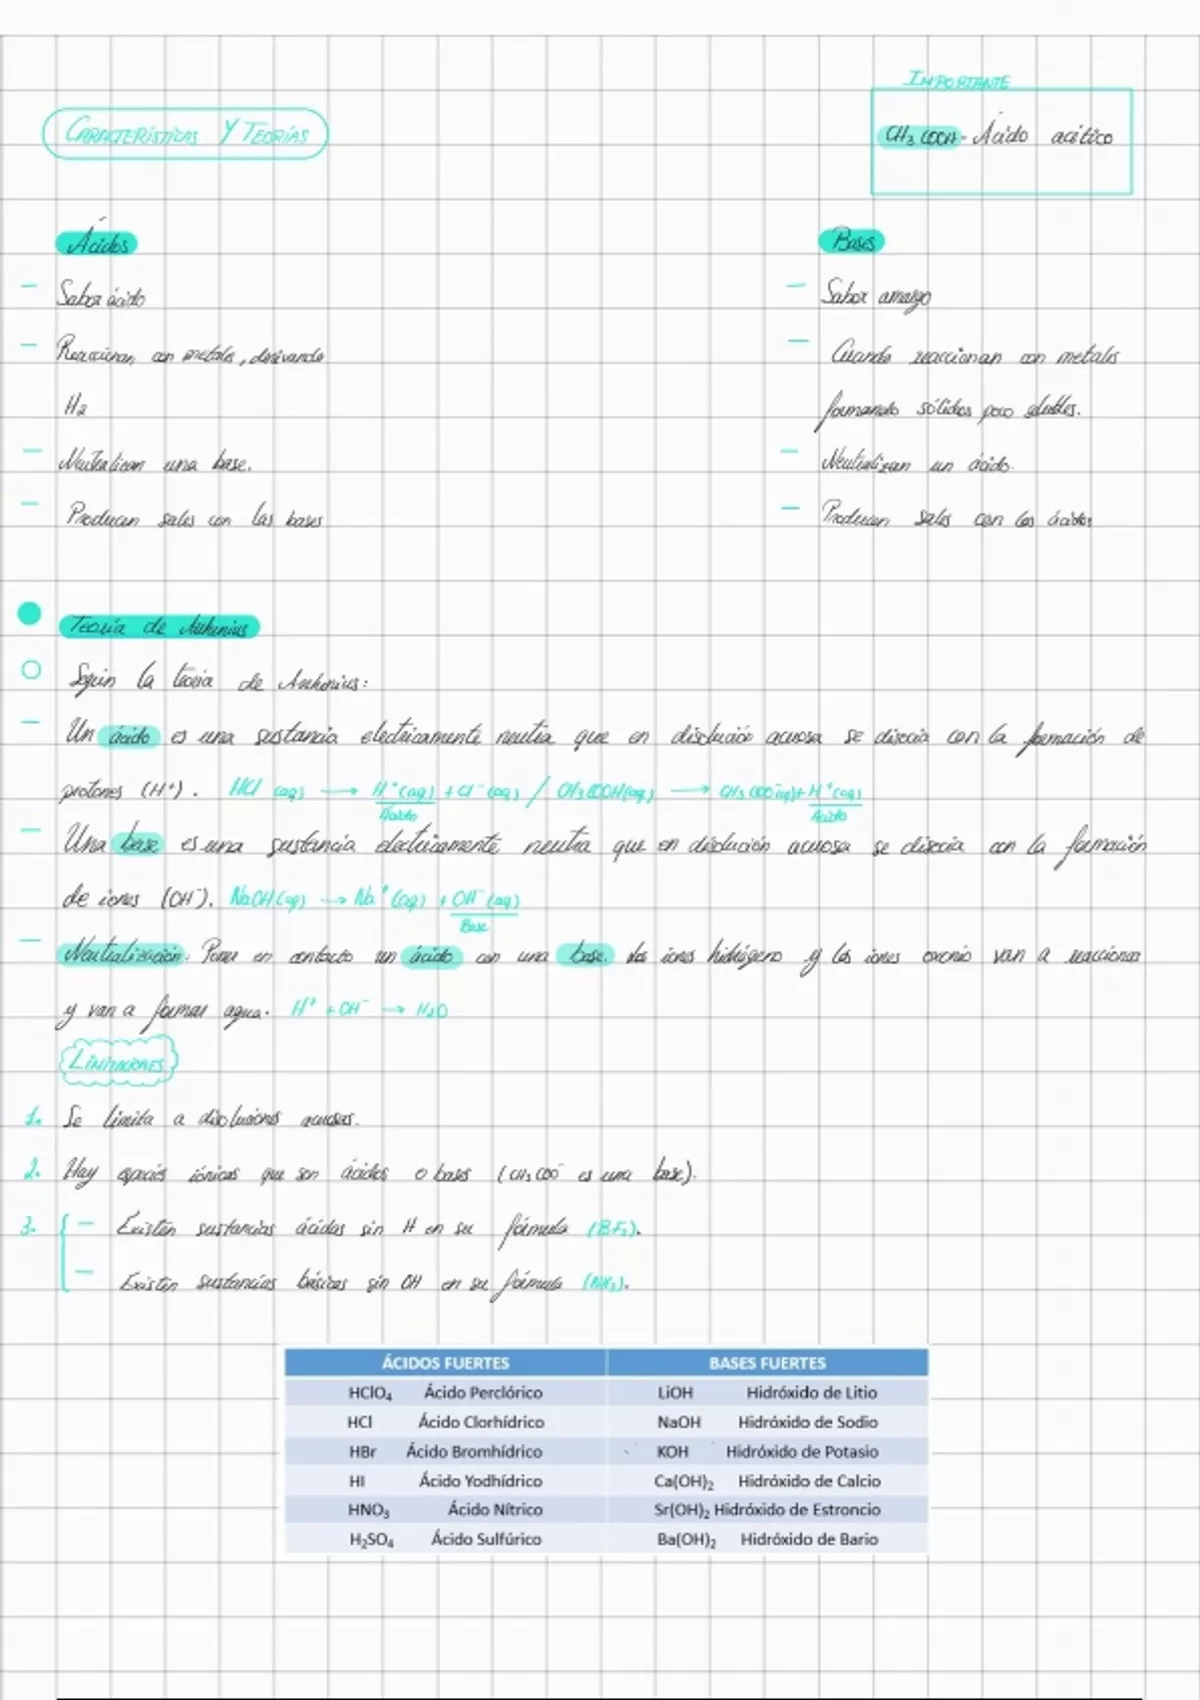 IMPORTANTE
CARACTERÍSTICAS Y TEORÍAS
CH3 COOH - Ácido acético
Ácidos
Bases
- Sabor ácido
- Sabor amargo
- Reaccionan con metales, derivando
- Cuando reaccionan con metales
H2
formando sólidos poco solubles.
- Neutralizan una base.
- Neutralizan un ácido.
- Producen sales con las bases
- Producen sales con los ácidos
Teoría de Arrhenius
Según la teoría de Arrhenius:
- Un ácido es una sustancia eléctricamente neutra que en disolución acuosa se disocia con la formación de
protones (H+). HCl (aq) → H+(aq) + Cl-(aq) / CH3COOH(aq) → CH3COO-(aq) + H+(aq)
Ácido Ácido
- Una base es una sustancia eléctricamente neutra que en disolución acuosa se disocia con la formación
de iones (OH-). NaOH(aq) → Na+(aq) + OH-(aq)
Base
- Neutralización. Poner en contacto un ácido con una base. Los iones hidrógeno y los iones oxonio van a reaccionar
y van a formar agua. H+ + OH- → H2O
LIMITACIONES
1. Se limita a disoluciones acuosas.
2. Hay especies iónicas que son ácidos o bases (CH3COO- es una base).
3. - Existen sustancias ácidas sin H en su fórmula (BF3).
- Existen sustancias básicas sin OH en su fórmula (NH3).
ÁCIDOS FUERTES BASES FUERTES
HClO4 Ácido Perclórico LiOH Hidróxido de Litio
HCl Ácido Clorhídrico NaOH Hidróxido de Sodio
HBr Ácido Bromhídrico KOH Hidróxido de Potasio
HI Ácido Yodhídrico Ca(OH)2 Hidróxido de Calcio
HNO3 Ácido Nítrico Sr(OH)2 Hidróxido de Estroncio
H2SO4 Ácido Sulfúrico Ba(OH)2 Hidróxido de Bario